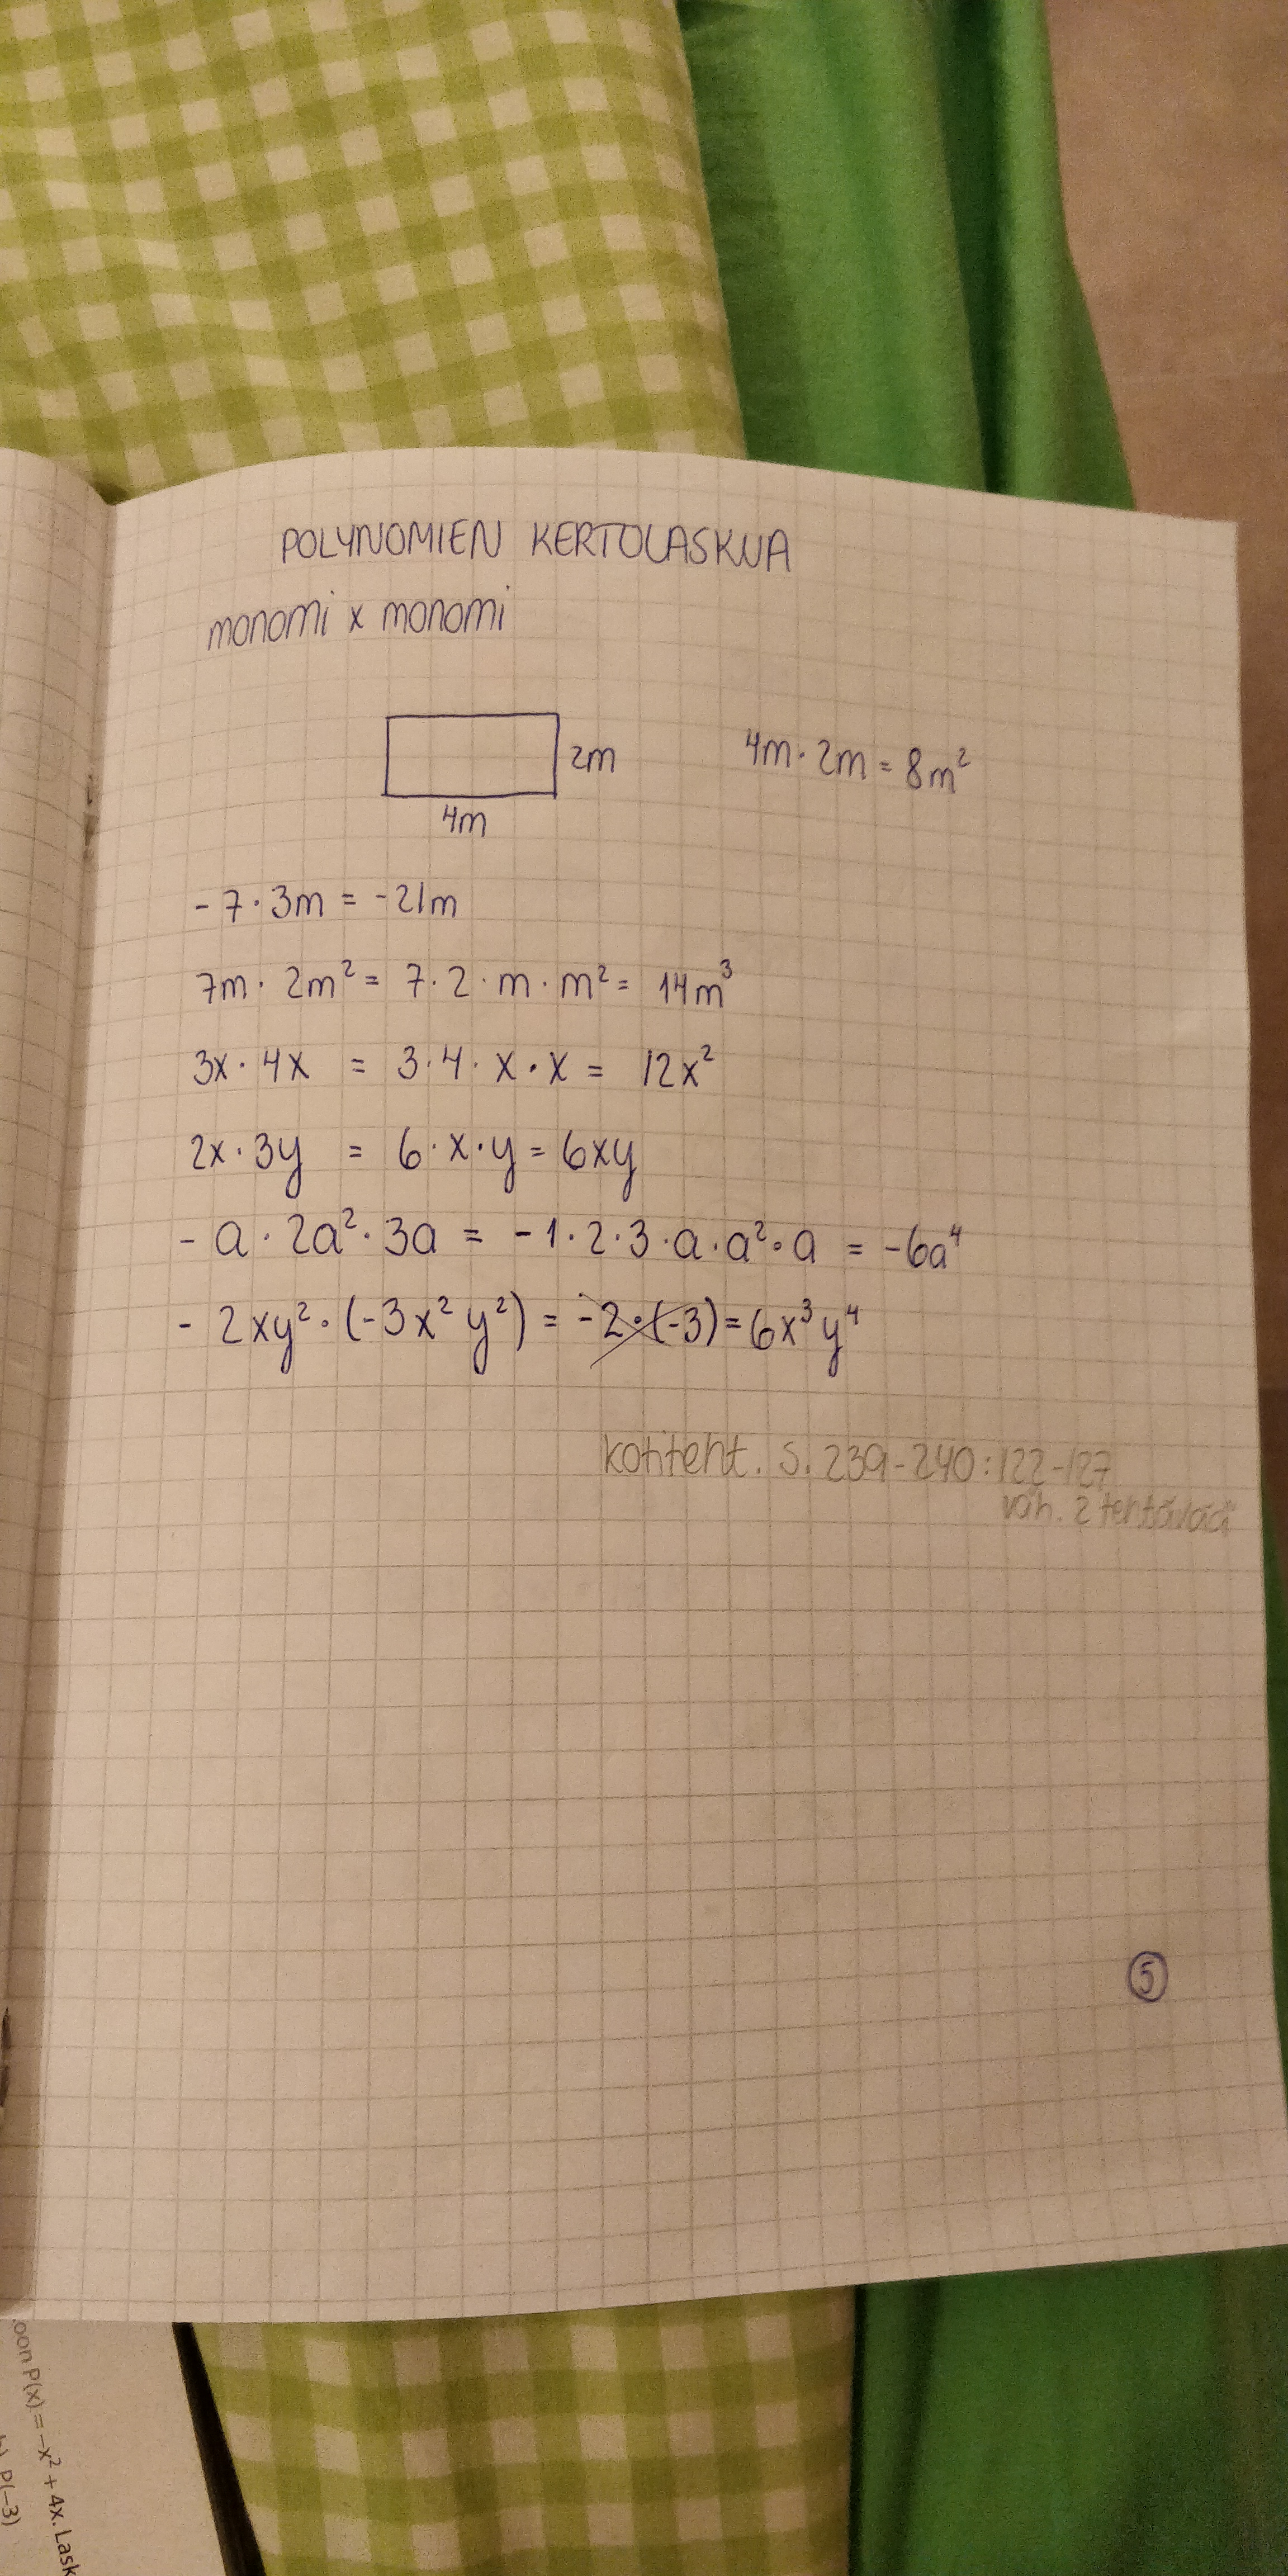 POLYNOMIEN KERTOLASKUA
monomi x monomi
2m
4m · 2m = 8m²
4m
- 7 · 3m = -21m
7m · 2m² = 7 · 2 · m · m² = 14m³
3x · 4x = 3 · 4 · x · x = 12x²
2x · 3y = 6 · x · y = 6xy
- a · 2a² · 3a = -1 · 2 · 3 · a · a² · a = -6a⁴
- 2xy² · (-3x²y²) = -2 · (-3) = 6x³y⁴
kotiteht. s. 239-240 : 122-127
väh. 2 tehtävää
5
oon P(x) = -x² + 4x. Lask
P(-3)